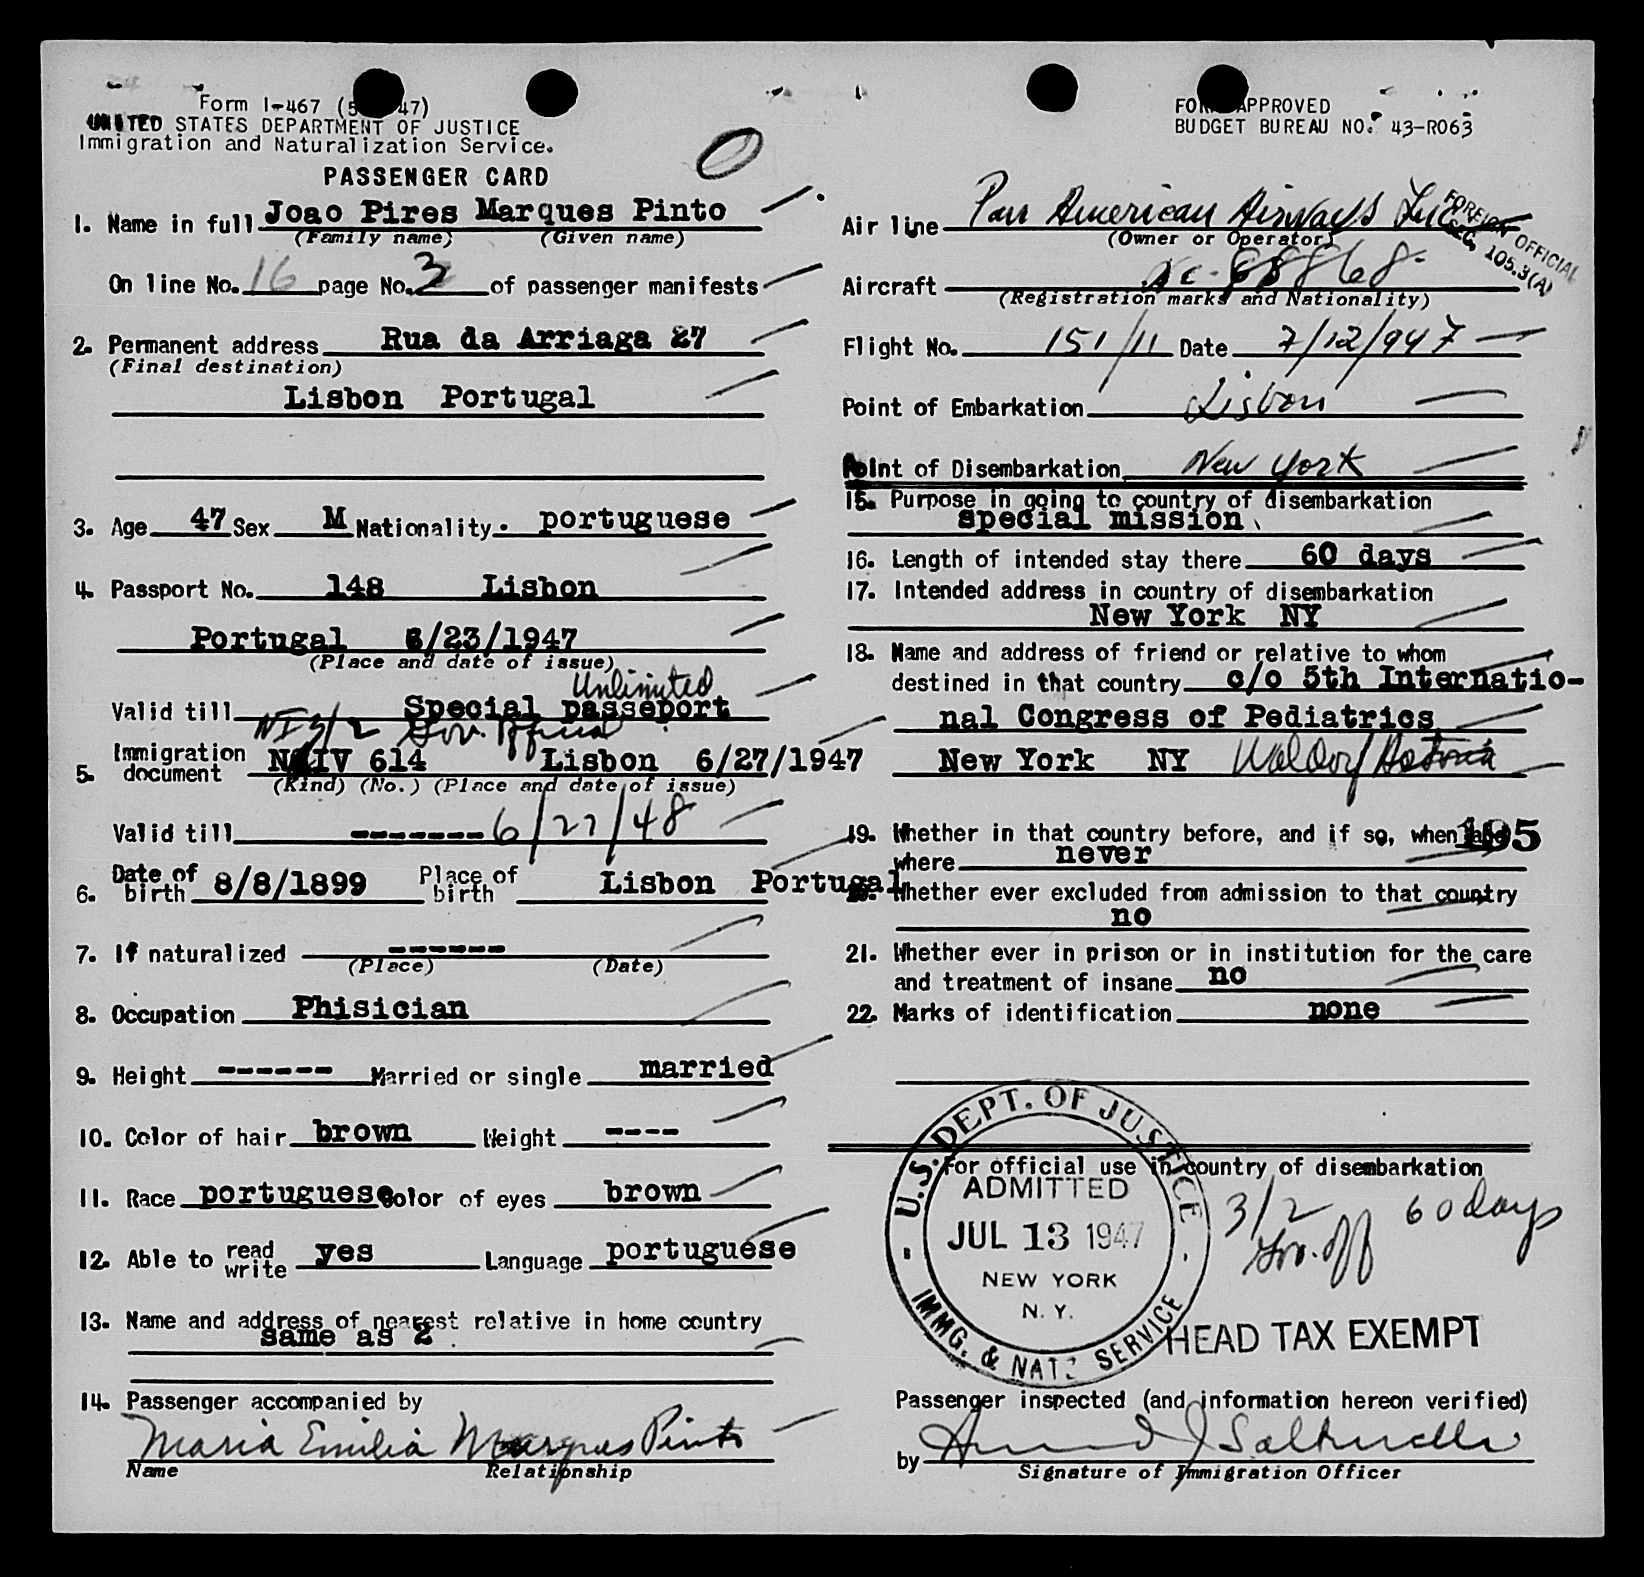 Form I-467 (5 47)
UNITED STATES DEPARTMENT OF JUSTICE
Immigration and Naturalization Service.
PASSENGER CARD
1. Name in full Joao Pires Marques Pinto
(Family name) (Given name)
On line No. 16 page No. 3 of passenger manifests
2. Permanent address Rua da Arriaga 27
(Final destination)
Lisbon Portugal
3. Age 47 Sex M Nationality. portuguese
4. Passport No. 148 Lisbon
Portugal 6/23/1947
(Place and date of issue)
Unlimited
Valid till Special passeport
NI 3/2 Gov. Official
5. Immigration document IV 614 Lisbon 6/27/1947
(Kind) (No.) (Place and date of issue)
Valid till ------- 6/27/48
6. Date of birth 8/8/1899 Place of birth Lisbon Portugal
7. If naturalized ------
(Place) (Date)
8. Occupation Phisician
9. Height ------ Married or single married
10. Color of hair brown Weight ----
11. Race portuguese Color of eyes brown
12. Able to read write yes Language portuguese
13. Name and address of nearest relative in home country
same as 2
14. Passenger accompanied by
Maria Emilia Marques Pinto
Name Relationship
FORM APPROVED
BUDGET BUREAU NO. 43-R063
Air line Pan American Airways Inc
(Owner or Operator)
FOREIGN OFFICIAL
SEC. 105.3(A)
Aircraft NC-88868
(Registration marks and Nationality)
Flight No. 151/11 Date 7/12/947
Point of Embarkation Lisbon
Point of Disembarkation New York
15. Purpose in going to country of disembarkation
special mission
16. Length of intended stay there 60 days
17. Intended address in country of disembarkation
New York NY
18. Name and address of friend or relative to whom
destined in that country c/o 5th Internatio-
nal Congress of Pediatrics
New York NY Waldorf Astoria
19. Whether in that country before, and if so, when and 195
where never
20. Whether ever excluded from admission to that country
no
21. Whether ever in prison or in institution for the care
and treatment of insane no
22. Marks of identification none
For official use in country of disembarkation
U.S. DEPT. OF JUSTICE
ADMITTED
JUL 13 1947
NEW YORK
N. Y.
IMMG. & NATZ SERVICE
3/2 60 days
Gov. Off
HEAD TAX EXEMPT
Passenger inspected (and information hereon verified)
by
Signature of Immigration Officer